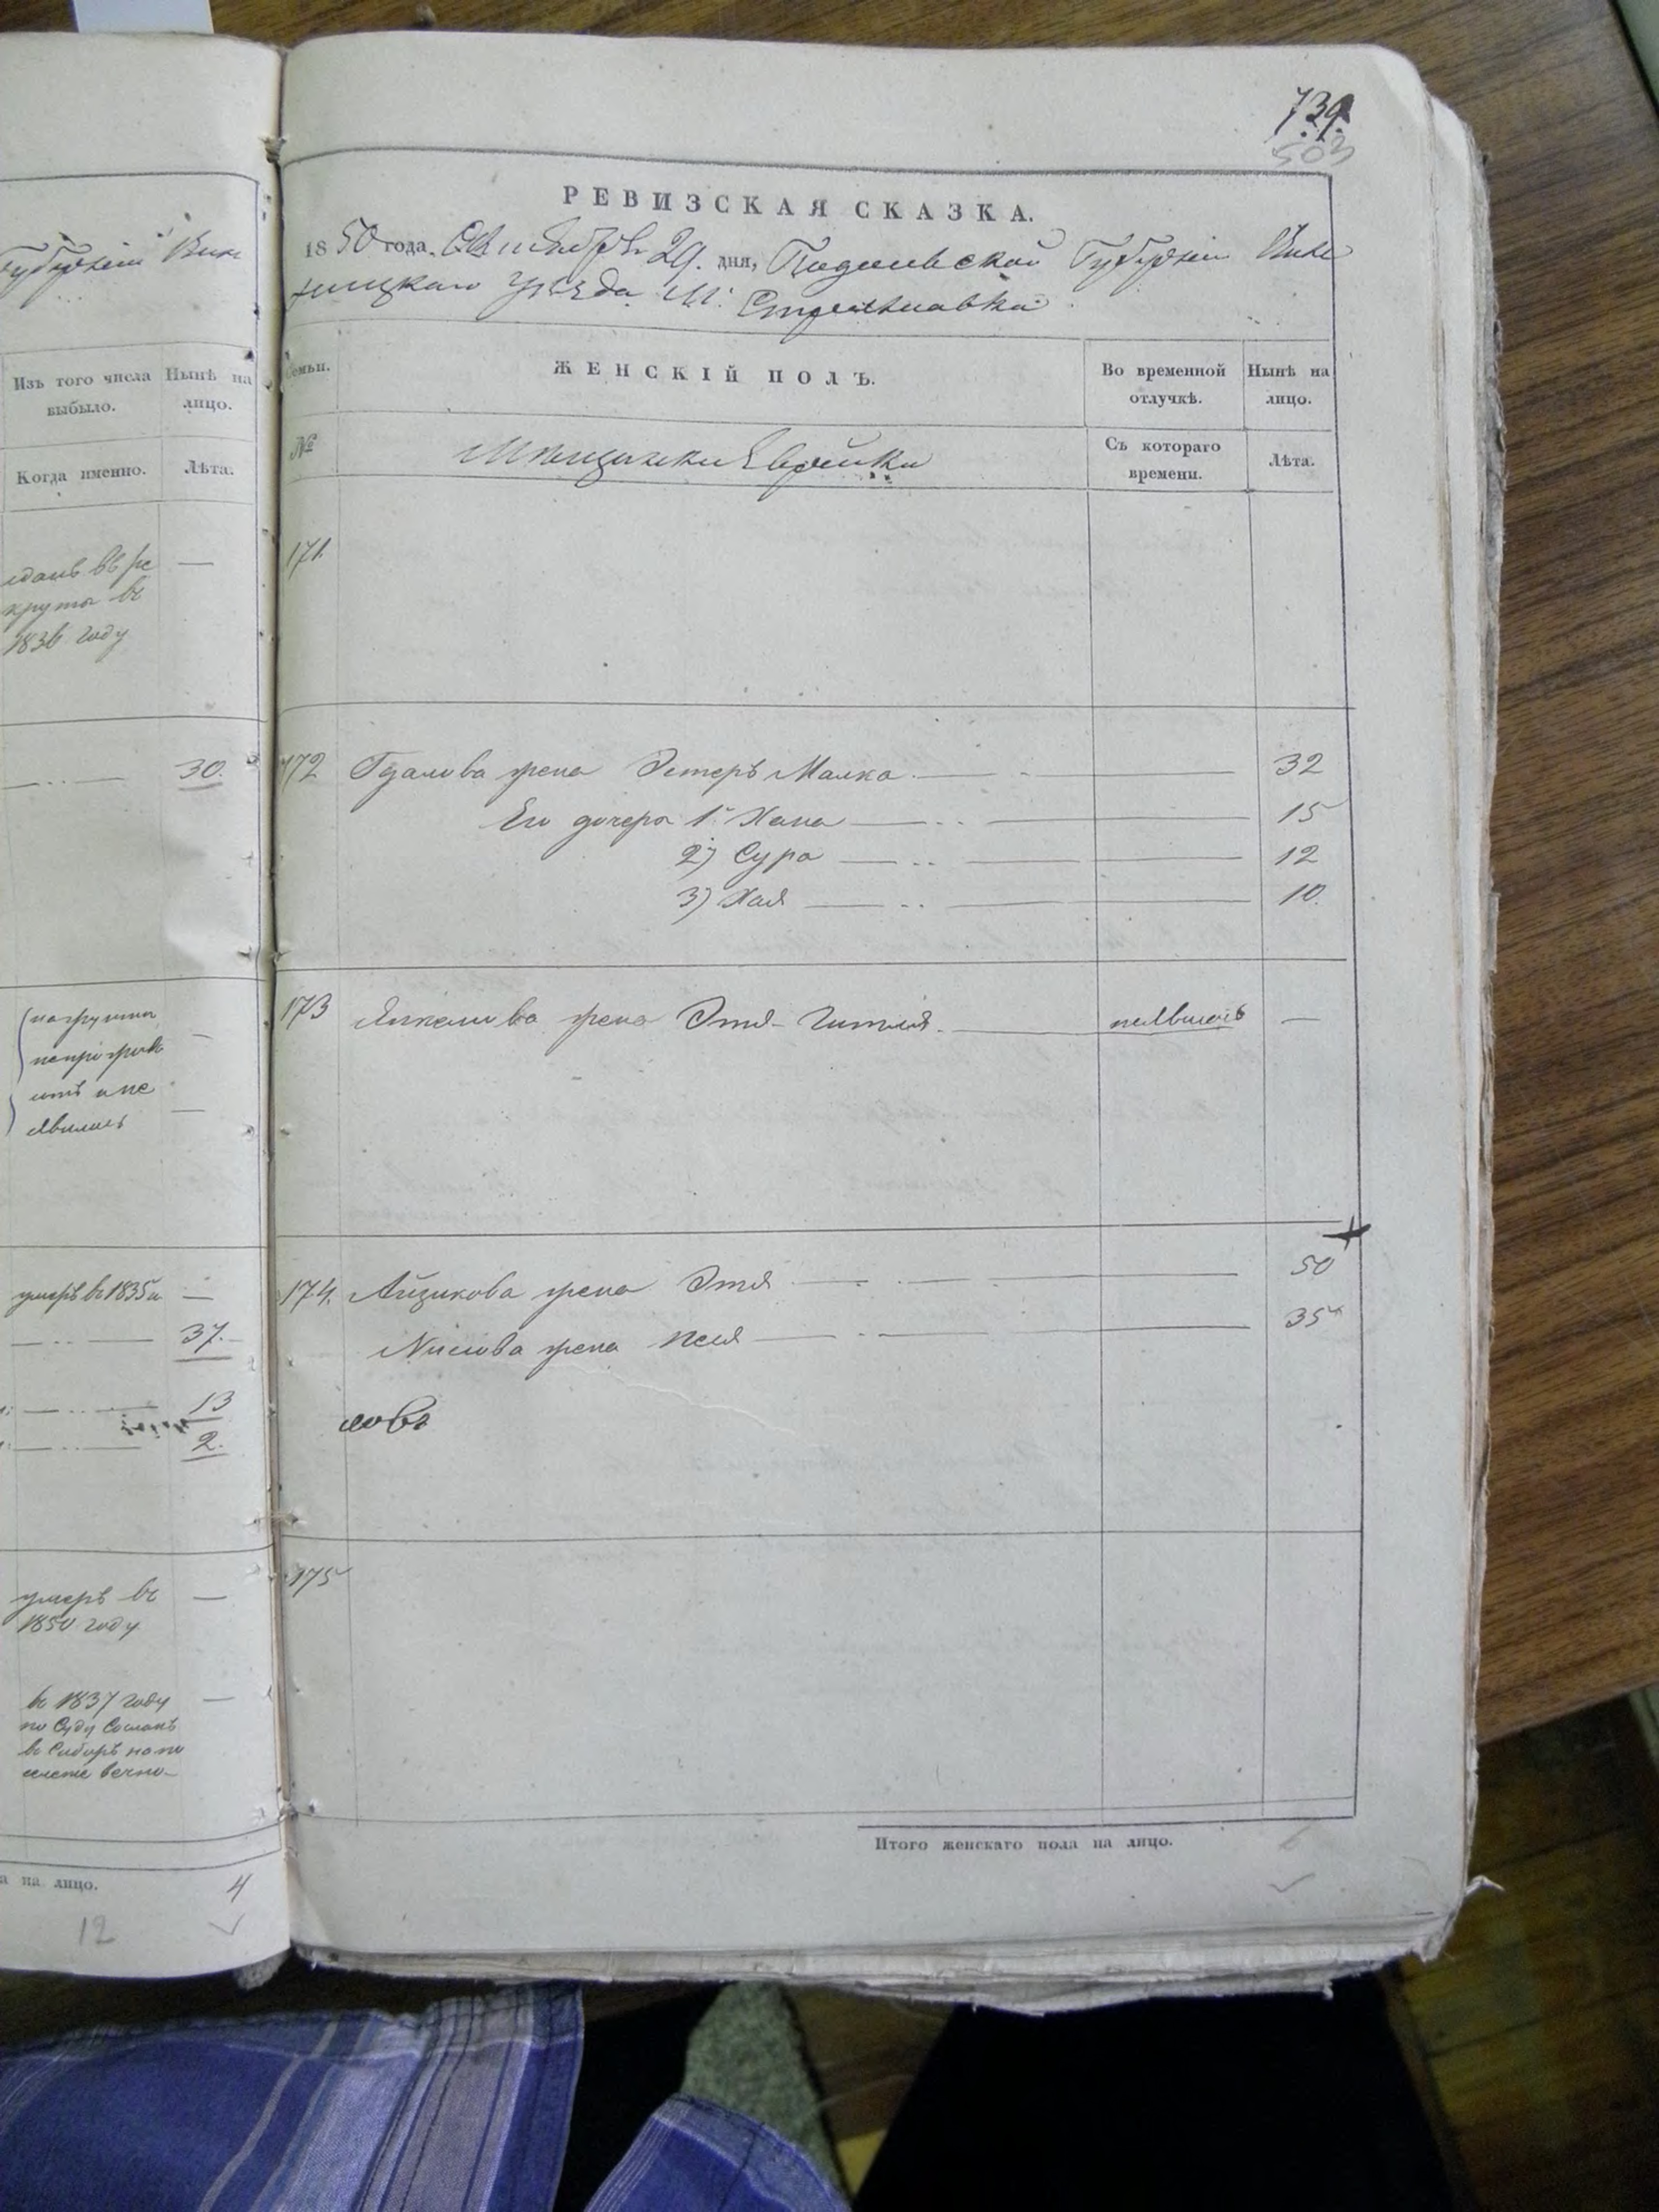 Губерніи Вин
Изъ того числа выбыло.
Нынѣ на лицо.
Когда именно.
Лѣта.
вь ре
круты въ
1836 году
30.
не
явились
умеръ въ 1835 г
37.
13
2.
умеръ въ
1850 году
въ 1837 году
по Суду Сосланъ
въ Сибирь на по
селение вечно
на лицо.
4
12
739.
503
РЕВИЗСКАЯ СКАЗКА.
1850 года. Октября 29. дня, Подольской Губерніи Вин
ницкаго уѣзда М. Стрижавка
Семьи.
ЖЕНСКІЙ ПОЛЪ.
Во временной отлучкѣ.
Нынѣ на лицо.
№
Мѣщанки Еврейки
Съ котораго времени.
Лѣта.
171.
172 жена Эстеръ Малка 32
Его дочери 1. Хана 15
2) Сура 12
3) Хая 10.
173 Янкелева жена Этя-Гитля неявилась
174. Айзикова жена Этя 50
жена Песя 35
175
Итого женскаго пола на лицо.
6